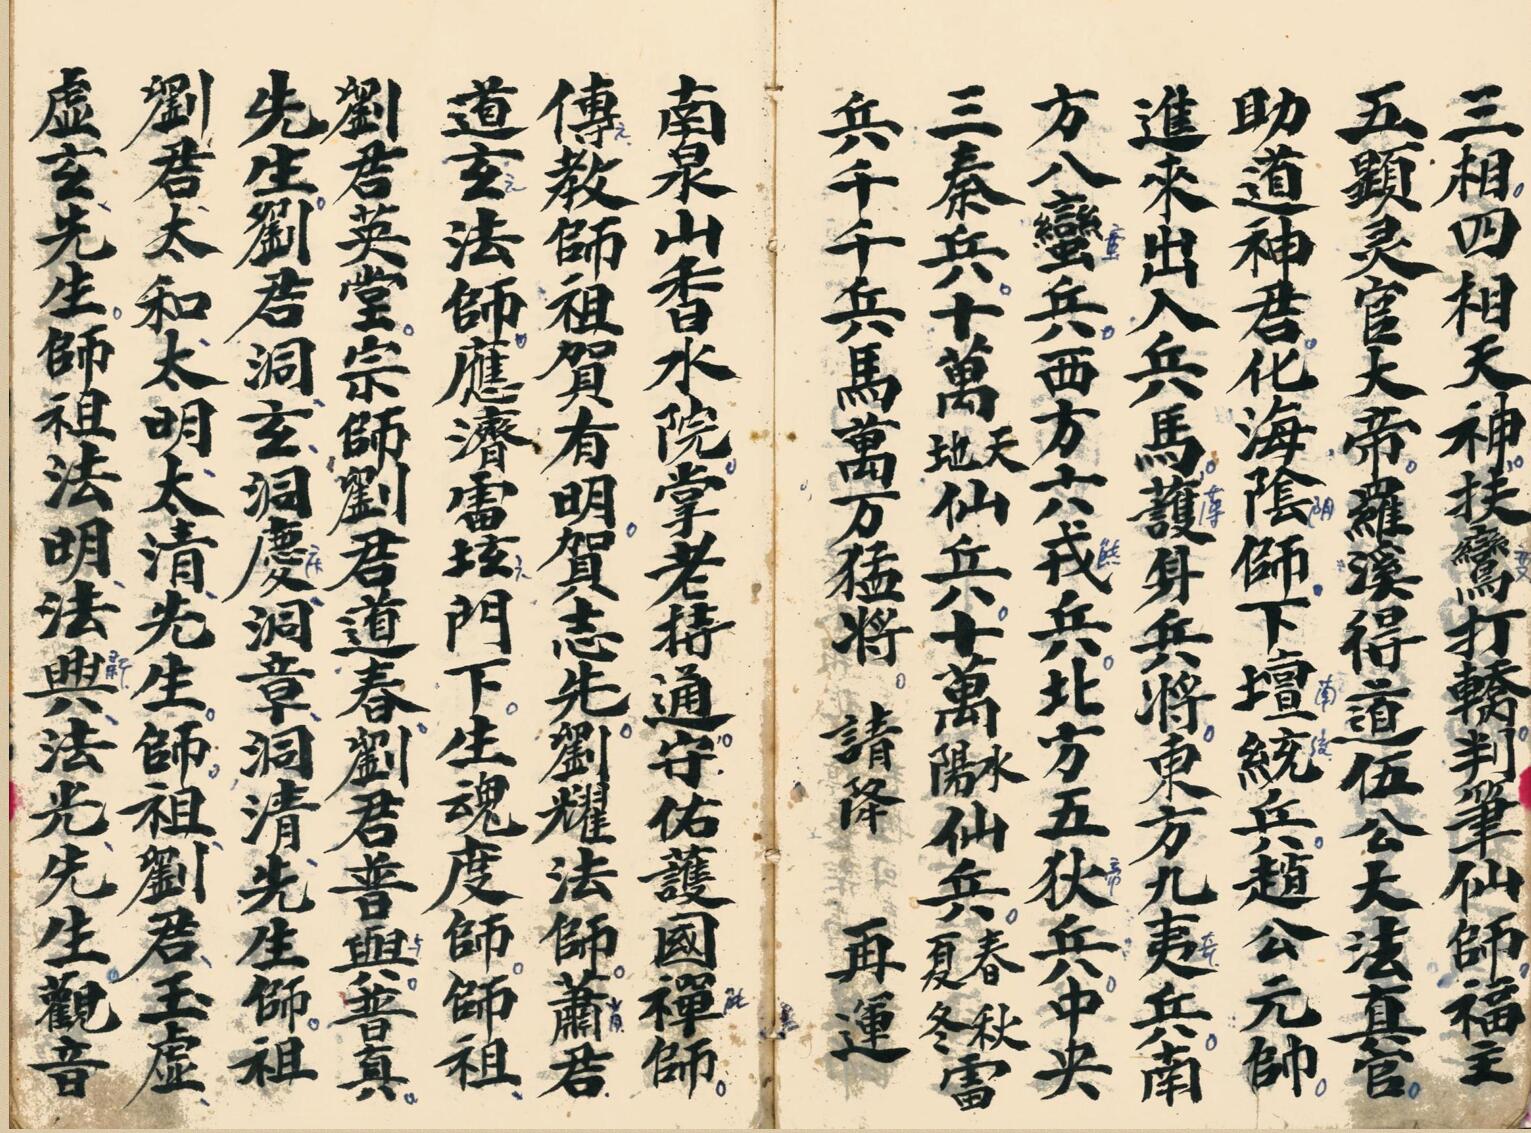 三相四相天神扶鸞打轎判筆仙師福主
五顕灵官大帝羅溪得道伍公大法真官
助道神君化海陰師下壇統兵趙公元帥
進來出入兵馬護身兵將東方九夷兵南
方八蠻兵西方六戎兵北方五狄兵中央
三秦兵十萬天地仙兵十萬水陽仙兵春夏秋冬雷
兵千千兵馬萬万猛将 請降 再運
南泉山香水院掌老持通守佑護國禪師
傳教師祖賀有明賀志先劉耀法師蕭君
道玄法師應濟雷垓門下生魂度師師祖
劉君英堂宗師劉君道春劉君普與普真
先生劉君洞玄洞慶洞章洞清先生師祖
劉君太和太明太清先生師祖劉君玉虛
虛玄先生師祖法明法興法光先生觀音